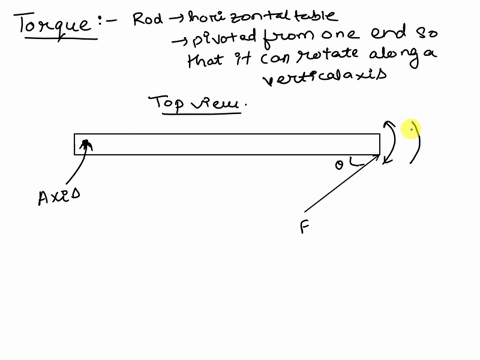 Torque:- Rod → horizontal table
→ pivoted from one end so
that it can rotate along a
vertical axis
Top view.
θ
Axis
F